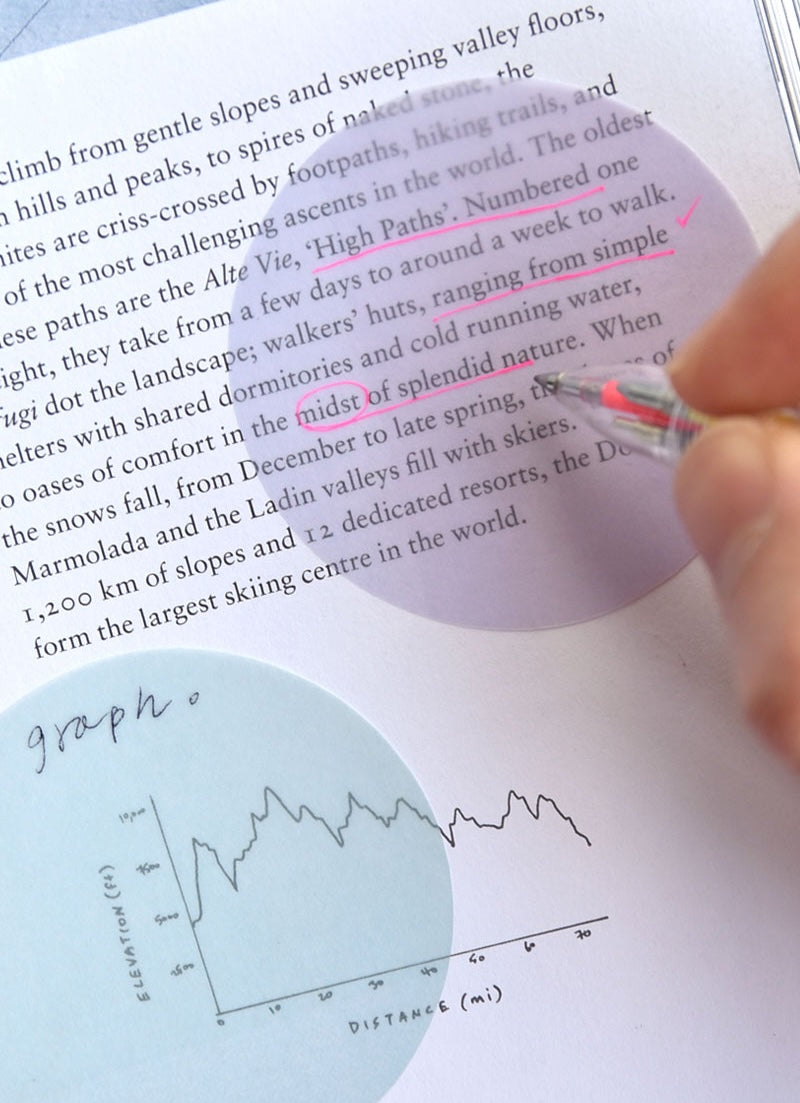 climb from gentle slopes and sweeping valley floors,
hills and peaks, to spires of naked stone, the
are criss-crossed by footpaths, hiking trails, and
of the most challenging ascents in the world. The oldest
paths are the Alte Vie, ‘High Paths’. Numbered one
they take from a few days to around a week to walk.
dot the landscape; walkers’ huts, ranging from simple
with shared dormitories and cold running water,
oases of comfort in the midst of splendid nature. When
the snows fall, from December to late spring, of
Marmolada and the Ladin valleys fill with skiers.
1,200 km of slopes and 12 dedicated resorts, the
form the largest skiing centre in the world.
graph.
10,000
7500
5000
2500
ELEVATION (ft)
0 10 20 30 40 50 60 70
DISTANCE (mi)